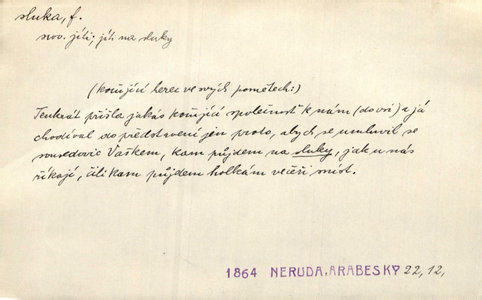 sluka, f.
nov. jíti; jíti na sluky
(kočující herec ve svých pamětech:)
Tenkrát přišla jakás kočující společnost k nám (do vsi) a já
chodíval do představení jen proto, abych se umluvil se
sousedovic Vaškem, kam půjdem na sluky, jak u nás
říkají, čili kam půjdem holkám večer snést.
1864 NERUDA, ARABESKY 22, 12,